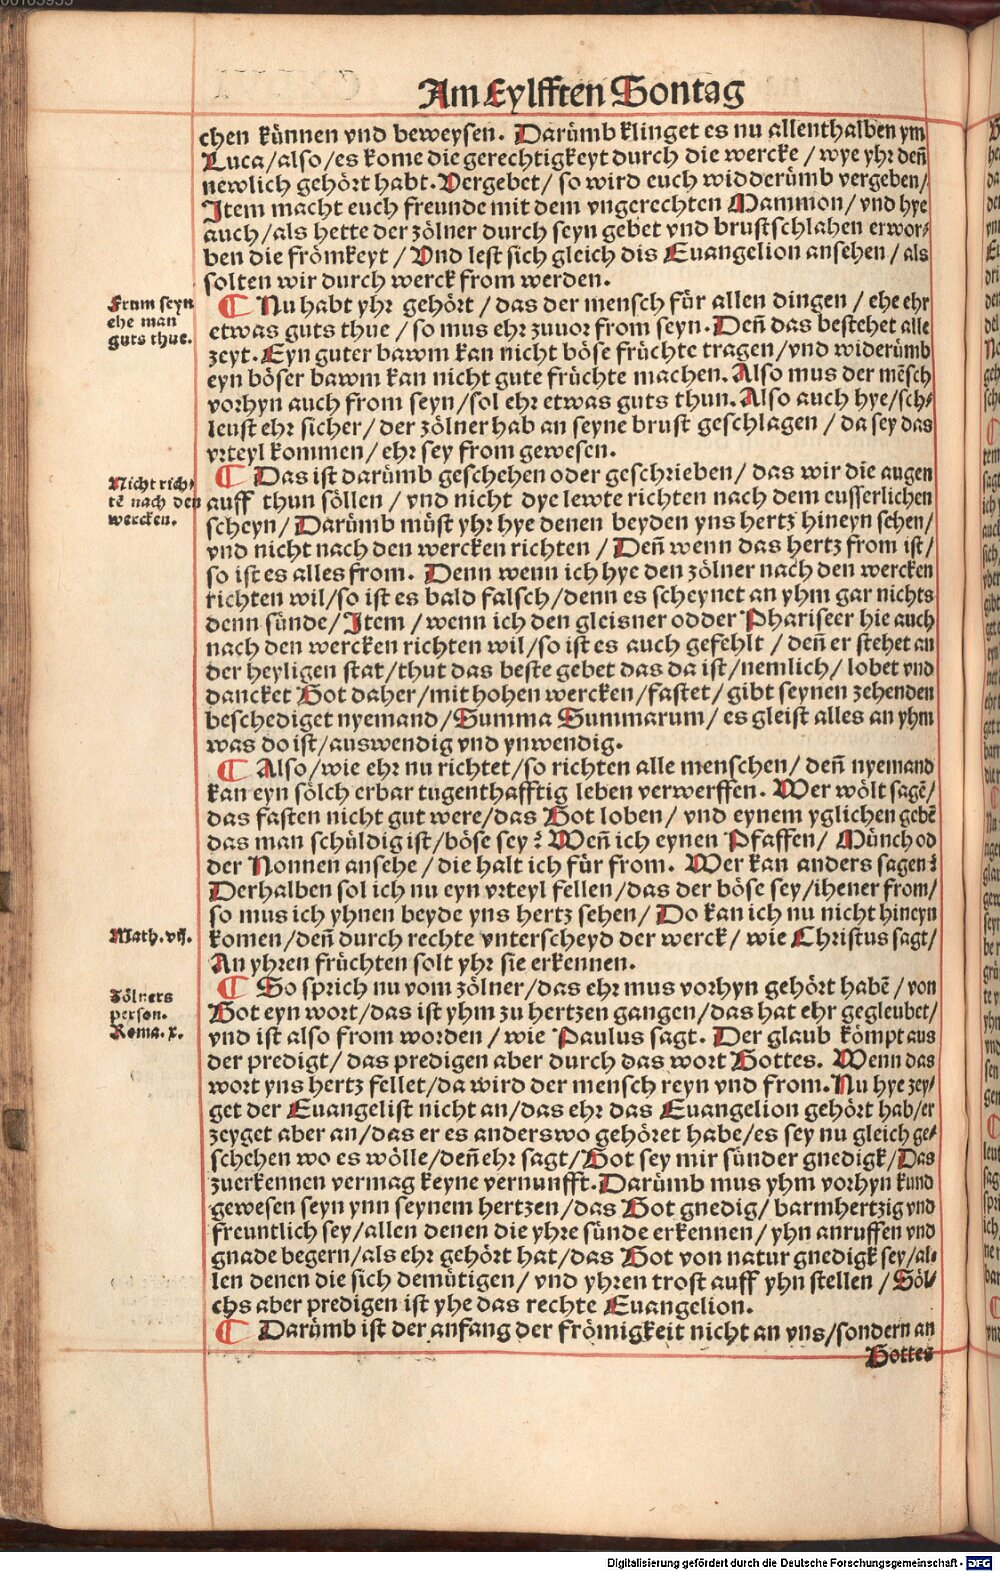 Am Eylfften Sontag
chen künnen vnd beweysen. Darümb klinget es nu allenthalben ym
Luca/also/es kome die gerechtigkeyt durch die wercke/wye yhr deñ
newlich gehört habt. Vergebet/so wird euch widderümb vergeben/
Item macht euch freunde mit dem vngerechten Mammon/vnd hye
auch/als hette der zölner durch seyn gebet vnd brustschlahen erwor-
ben die frömkeyt/Vnd lest sich gleich dis Euangelion ansehen/als
solten wir durch werck from werden.
Frum seyn
ehe man
guts thue.
¶ Nu habt yhr gehört/das der mensch für allen dingen/ehe ehr
etwas guts thue/so mus ehr zuuor from seyn. Deñ das bestehet alle
zeyt. Eyn guter bawm kan nicht böse früchte tragen/vnd widerümb
eyn böser bawm kan nicht gute früchte machen. Also mus der mẽsch
vorhyn auch from seyn/sol ehr etwas guts thun. Also auch hye/sch-
leust ehr sicher/der zölner hab an seyne brust geschlagen/da sey das
vrteyl kommen/ehr sey from gewesen.
Nicht rich-
tẽ nach den
wercken.
¶ Das ist darümb geschehen oder geschrieben/das wir die augen
auff thun söllen/vnd nicht dye lewte richten nach dem eusserlichen
scheyn/Darümb müst yhr hye denen beyden yns hertz hineyn sehen/
vnd nicht nach den wercken richten/Deñ wenn das hertz from ist/
so ist es alles from. Denn wenn ich hye den zölner nach den wercken
richten wil/so ist es bald falsch/denn es scheynet an yhm gar nichts
denn sünde/Item/wenn ich den gleisner odder Phariseer hie auch
nach den wercken richten wil/so ist es auch gefehlt/deñ er stehet an
der heyligen stat/thut das beste gebet das da ist/nemlich/lobet vnd
dancket Got daher/mit hohen wercken/fastet/gibt seynen zehenden
beschediget nyemand/Summa Summarum/es gleist alles an yhm
was do ist/auswendig vnd ynwendig.
¶ Also/wie ehr nu richtet/so richten alle menschen/deñ nyemand
kan eyn sölch erbar tugenthafftig leben verwerffen. Wer wölt sagẽ/
das fasten nicht gut were/das Got loben/vnd eynem yglichen gebẽ
das man schüldig ist/böse sey? Weñ ich eynen Pfaffen/Münch od
der Nonnen ansehe/die halt ich für from. Wer kan anders sagen?
Derhalben sol ich nu eyn vrteyl fellen/das der böse sey/ihener from/
so mus ich yhnen beyde yns hertz sehen/Do kan ich nu nicht hineyn
Math. vij.
komen/deñ durch rechte vnterscheyd der werck/wie Christus sagt/
An yhren früchten solt yhr sie erkennen.
Zölners
person.
Roma. x.
¶ So sprich nu vom zölner/das ehr mus vorhyn gehört habẽ/von
Got eyn wort/das ist yhm zu hertzen gangen/das hat ehr gegleubet/
vnd ist also from worden/wie Paulus sagt. Der glaub kömpt aus
der predigt/das predigen aber durch das wort Gottes. Wenn das
wort yns hertz fellet/da wird der mensch reyn vnd from. Nu hye zey-
get der Euangelist nicht an/das ehr das Euangelion gehört hab/er
zeyget aber an/das er es anderswo gehöret habe/es sey nu gleich ge-
schehen wo es wölle/deñ ehr sagt/Got sey mir sünder gnedigk/Das
zuerkennen vermag keyne vernunfft. Darümb mus yhm vorhyn kund
gewesen seyn ynn seynem hertzen/das Got gnedig/barmhertzig vnd
freuntlich sey/allen denen die yhre sünde erkennen/yhn anruffen vnd
gnade begern/als ehr gehört hat/das Got von natur gnedigk sey/al-
len denen die sich demütigen/vnd yhren trost auff yhn stellen/Söl-
chs aber predigen ist yhe das rechte Euangelion.
¶ Darümb ist der anfang der frömigkeit nicht an vns/sondern an
Gottes
Digitalisierung gefördert durch die Deutsche Forschungsgemeinschaft - DFG